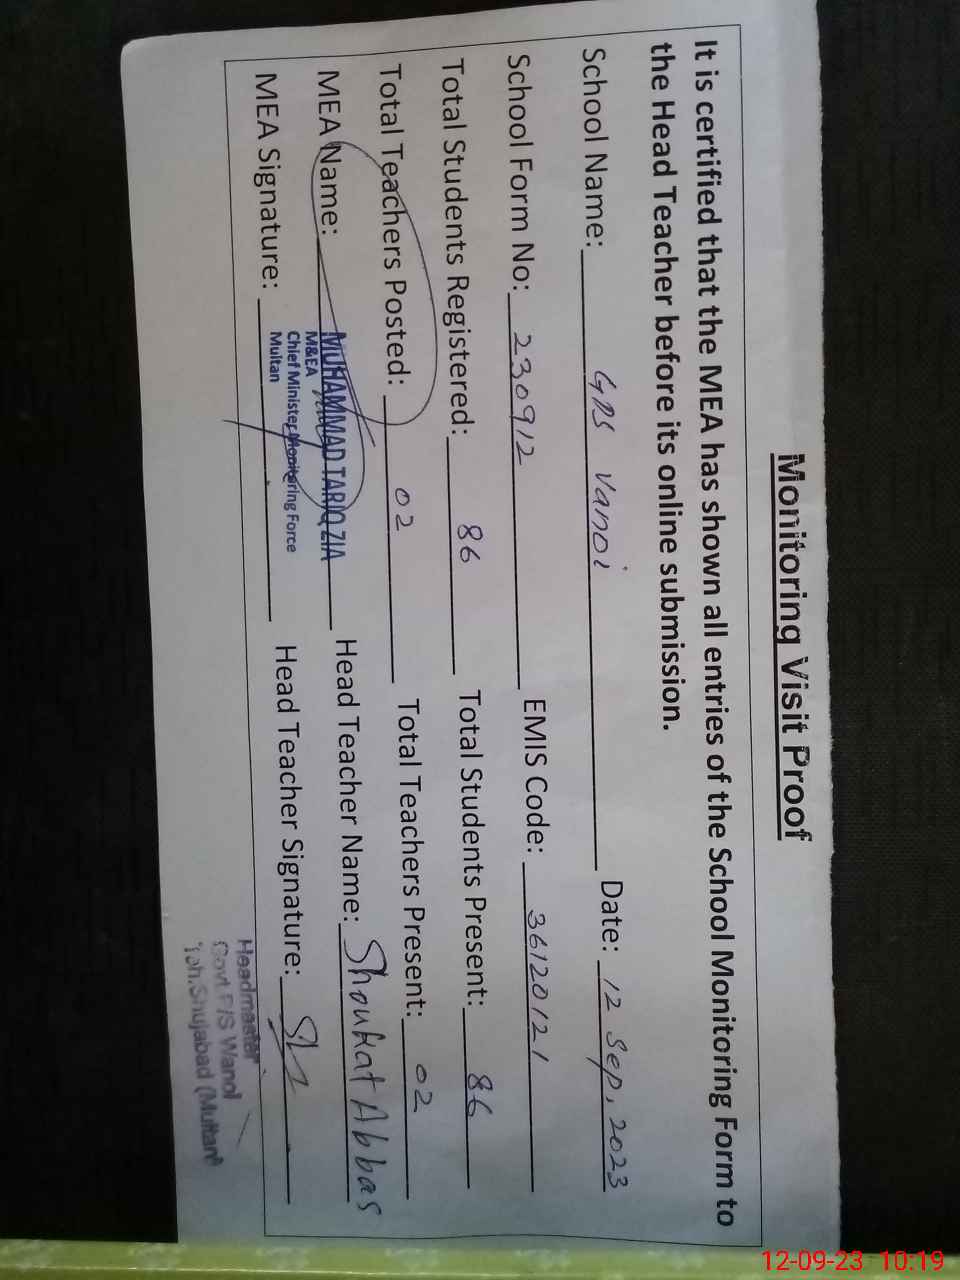 Monitoring Visit Proof
It is certified that the MEA has shown all entries of the School Monitoring Form to
the Head Teacher before its online submission.
School Name: GPS Vanoi Date: 12 Sep, 2023
School Form No: 230912 EMIS Code: 36120121
Total Students Registered: 86 Total Students Present: 86
Total Teachers Posted: 02 Total Teachers Present: 02
MEA Name: MUHAMMAD TARIQ ZIA Head Teacher Name: Shoukat Abbas
M&EA
Chief Minister Monitoring Force
Multan
MEA Signature: Head Teacher Signature:
Headmaster
Govt.P/S Wanoi
Teh.Shujabad (Multan)
12-09-23 10:19